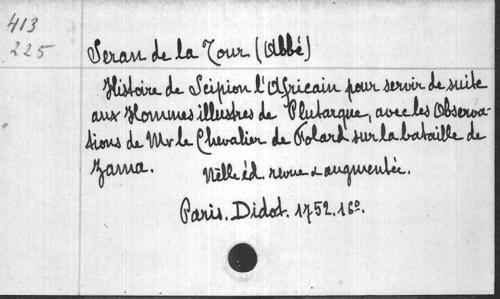 413
225
Seran de la Tour (Abbé)
Histoire de Scipion l'Africain pour servir de suite
aux Hommes illustres de Plutarque, avec les Observa-
tions de Mr le Chevalier de Folard sur la bataille de
Zama. Nlle éd. revue & augmentée.
Paris. Didot. 1752. 16º.